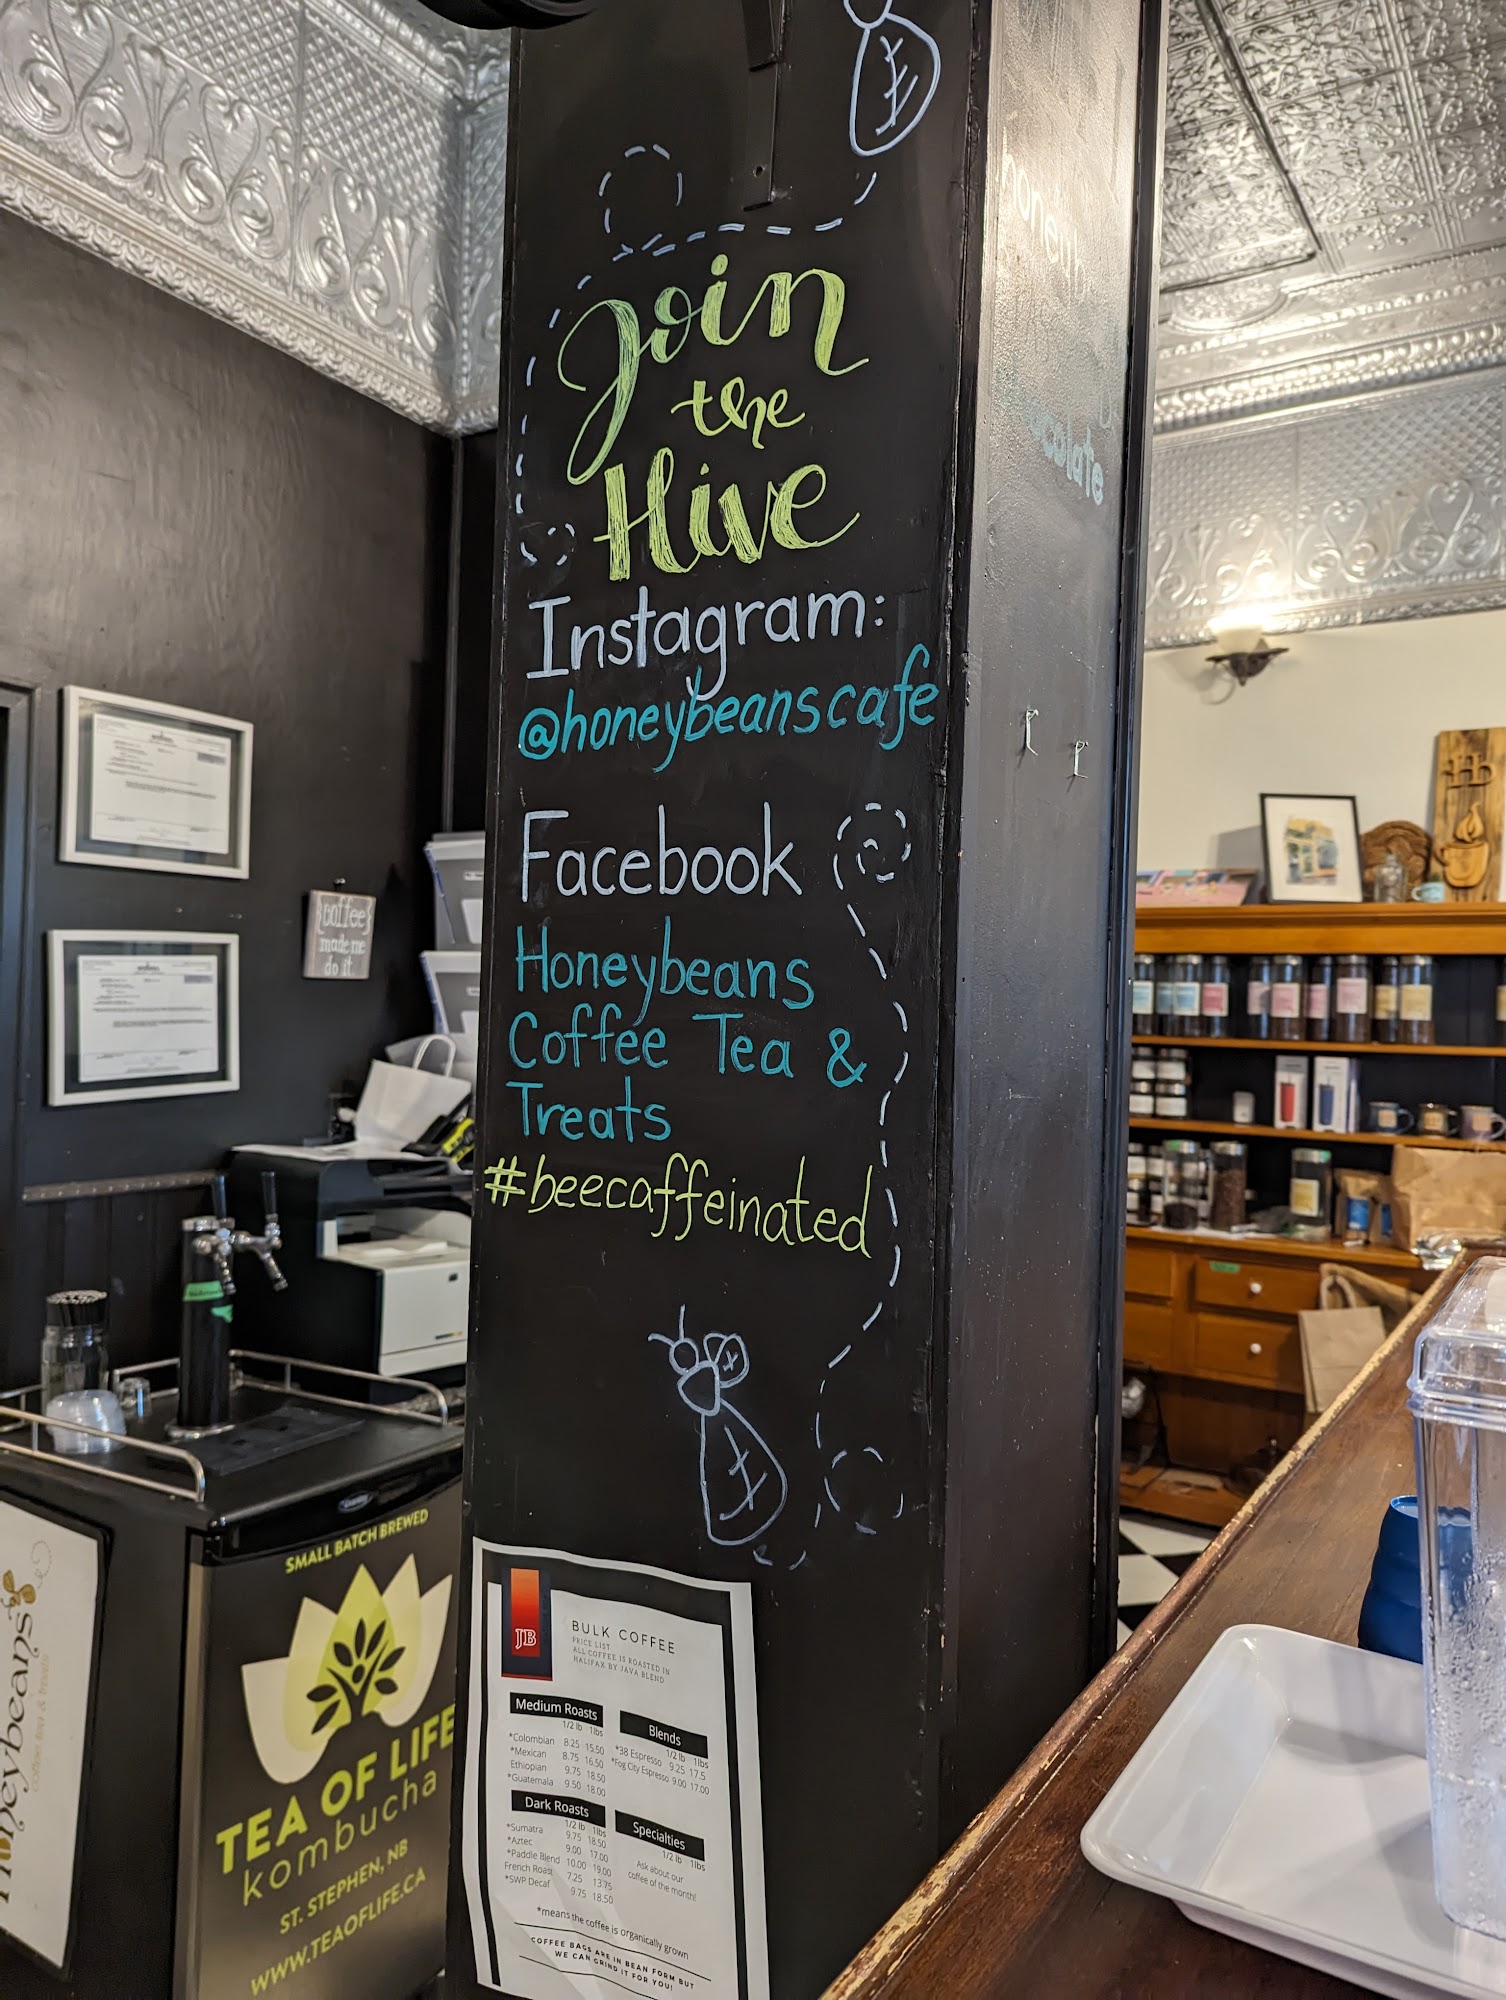 Join
the
Hive
Instagram:
@honeybeanscafe
Facebook
Honeybeans
Coffee Tea &
Treats
#beecaffeinated
{coffee}
made me
do it.
SMALL BATCH BREWED
TEA OF LIFE
kombucha
ST. STEPHEN, NB
WWW.TEAOFLIFE.CA
Honeybeans
coffee tea & treats
JB
BULK COFFEE
PRICE LIST
ALL COFFEE IS ROASTED IN
HALIFAX BY JAVA BLEND
Medium Roasts
1/2 lb 1lbs
*Colombian 8.25 15.50
*Mexican 8.75 16.50
Ethiopian 9.75 18.50
*Guatemala 9.50 18.00
Blends
1/2 lb 1lbs
*38 Espresso 9.25 17.5
*Fog City Espresso 9.00 17.00
Dark Roasts
1/2 lb 1lbs
*Sumatra 9.75 18.50
*Aztec 9.00 17.00
*Paddle Blend 10.00 19.00
French Roast 7.25 13.75
*SWP Decaf 9.75 18.50
Specialties
1/2 lb 1lbs
Ask about our
coffee of the month!
*means the coffee is organically grown
COFFEE BAGS ARE IN BEAN FORM BUT
WE CAN GRIND IT FOR YOU!